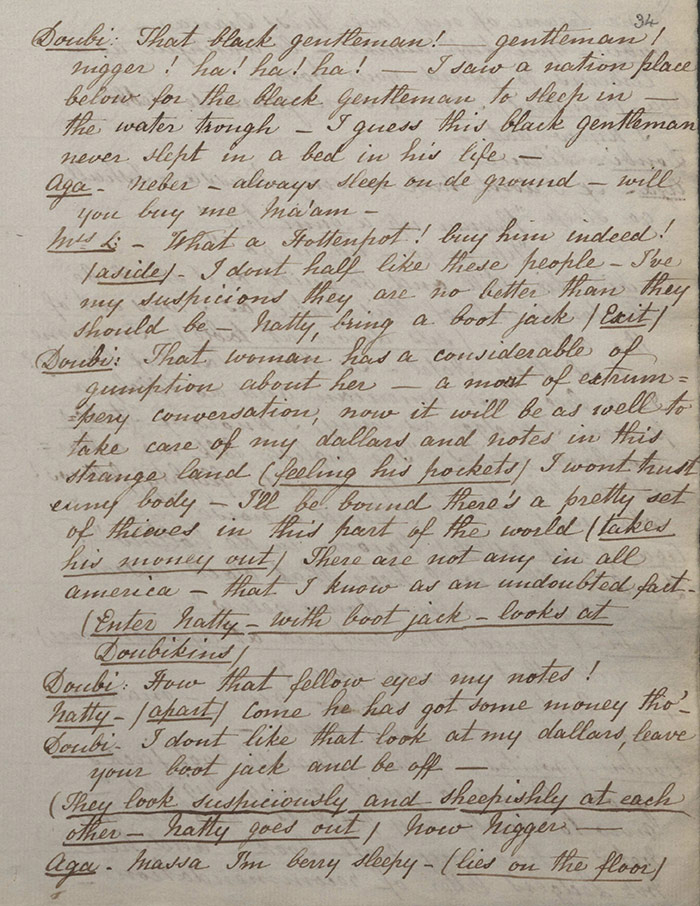 34
Doubi: That black gentleman! — gentleman!
nigger! ha! ha! ha! — I saw a nation place
below for the black gentleman to sleep in —
the water trough — I guess this black gentleman
never slept in a bed in his life —
Aga - neber - always sleep on de ground - will
you buy me Ma'am -
Mrs L: - What a Hottenpot! buy him indeed!
(aside) - I dont half like these people - I've
my suspicions they are no better than they
should be - Natty, bring a boot jack (Exit)
Doubi: That woman has a considerable of
gumption about her - a most of extrum=
=pery conversation, now it will be as well to
take care of my dollars and notes in this
strange land (feeling his pockets) I wont trust
enny body - I'll be bound there's a pretty set
of thieves in this part of the world (takes
his money out) There are not any in all
america - that I know as an undoubted fact -
(Enter Natty - with boot jack - looks at
Doubikins)
Doubi: How that fellow eyes my notes!
Natty - (apart) Come he has got some money tho' -
Doubi - I dont like that look at my dollars, leave
your boot jack and be off —
(They look suspiciously and sheepishly at each
other - Natty goes out) Now Nigger —
Aga - Massa I'm berry sleepy - (lies on the floor)